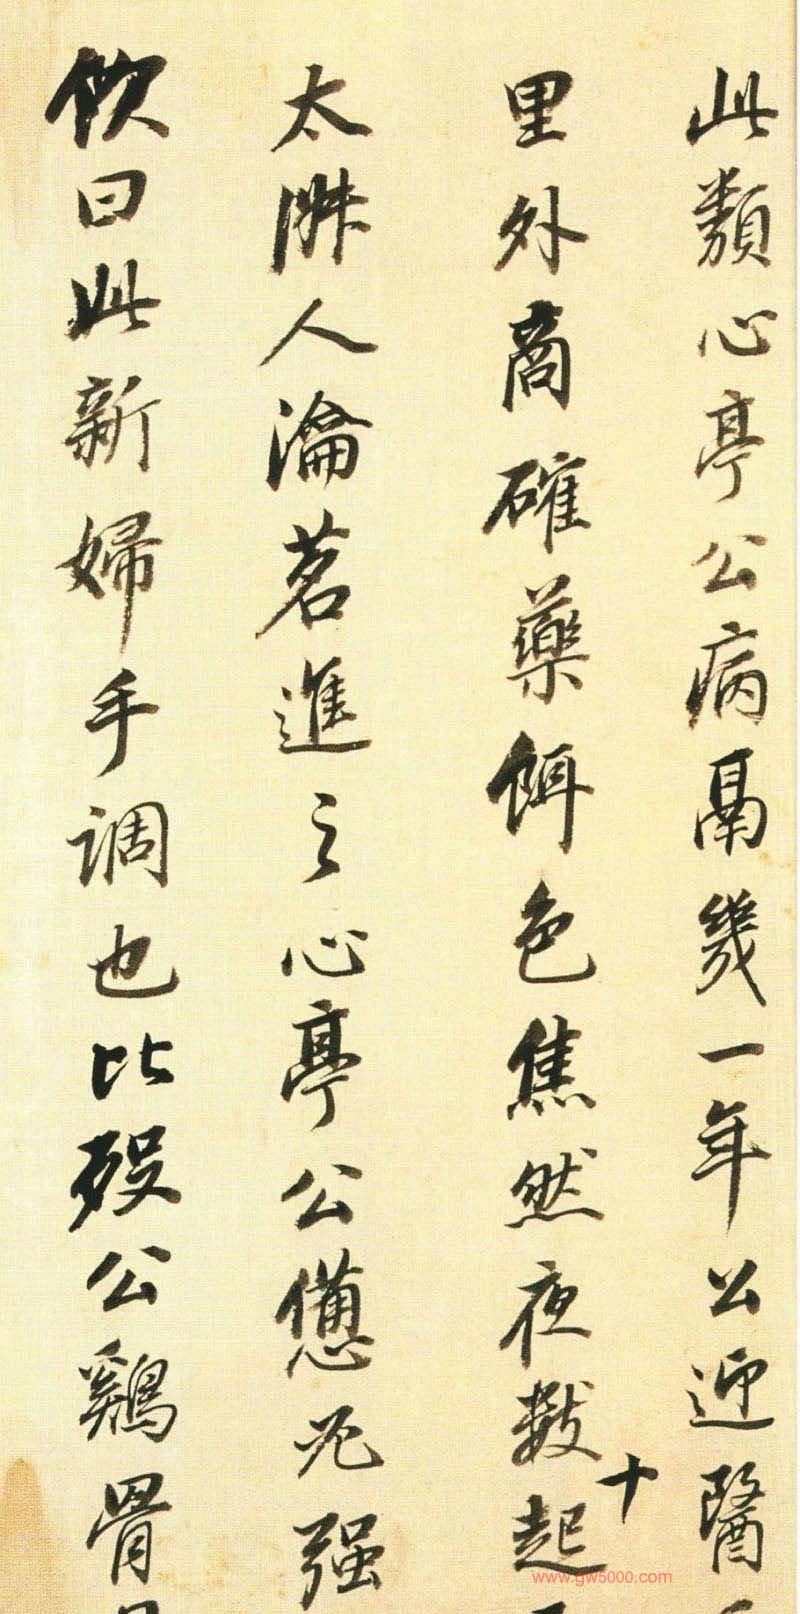 此類心亭公病鬲幾一年公迎醫
十
里外商確藥餌色焦然夜数起
太淋人瀹茗進之心亭公憊尤强
飲曰此新婦手調也比歿公鷄骨
www.gw5000.com